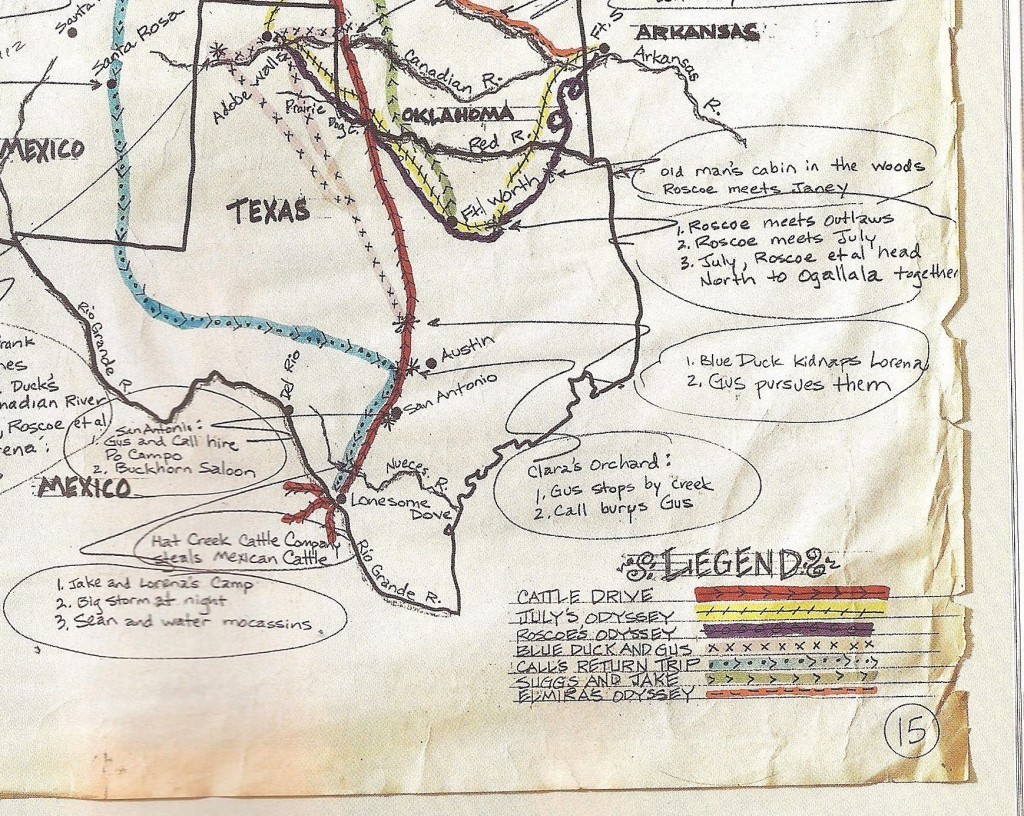 Santa
Santa Rosa
MEXICO
Adobe Walls
Prairie
Dog C.
Canadian R.
OKLAHOMA
Red R.
Ft. S
ARKANSAS
Arkansas
R.
TEXAS
Ft. Worth
Old man's cabin in the woods
Roscoe meets Janey
1. Roscoe meets Outlaws
2. Roscoe meets July
3. July, Roscoe et al head
North to Ogallala together
1. Blue Duck kidnaps Lorena
2. Gus pursues them
Rio Grande R.
Del Rio
Austin
San Antonio
rank
nes
. Duck's
nadian River
, Roscoe et al
rena:
San Antonio:
1. Gus and Call hire
Po Campo
2. Buckhorn Saloon
MEXICO
Nueces R.
Lonesome
Dove
Clara's Orchard:
1. Gus stops by creek
2. Call burys Gus
Hat Creek Cattle Company
steals Mexican Cattle
Rio Grande R.
1. Jake and Lorena's Camp
2. Big Storm at night
3. Sean and water mocassins
LEGEND
CATTLE DRIVE
JULY'S ODYSSEY
ROSCOE'S ODYSSEY
BLUE DUCK AND GUS
CALL'S RETURN TRIP
SUGGS AND JAKE
ELMIRA'S ODYSSEY
15